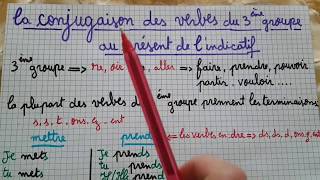 la conjugaison des verbes du 3ème groupe
au présent de l'indicatif
3ème groupe => re, oir aller => faire, prendre, pouvoir
partir. vouloir ....
la plupart des verbes du groupe prennent les terminaisons
s, s, t. ons, ez _ ent
mettre prend <= les verbes en dre => ds, ds, d, ons, ez, ent
Je mets Je prends
tu mets tu prends
Il/Elle prend